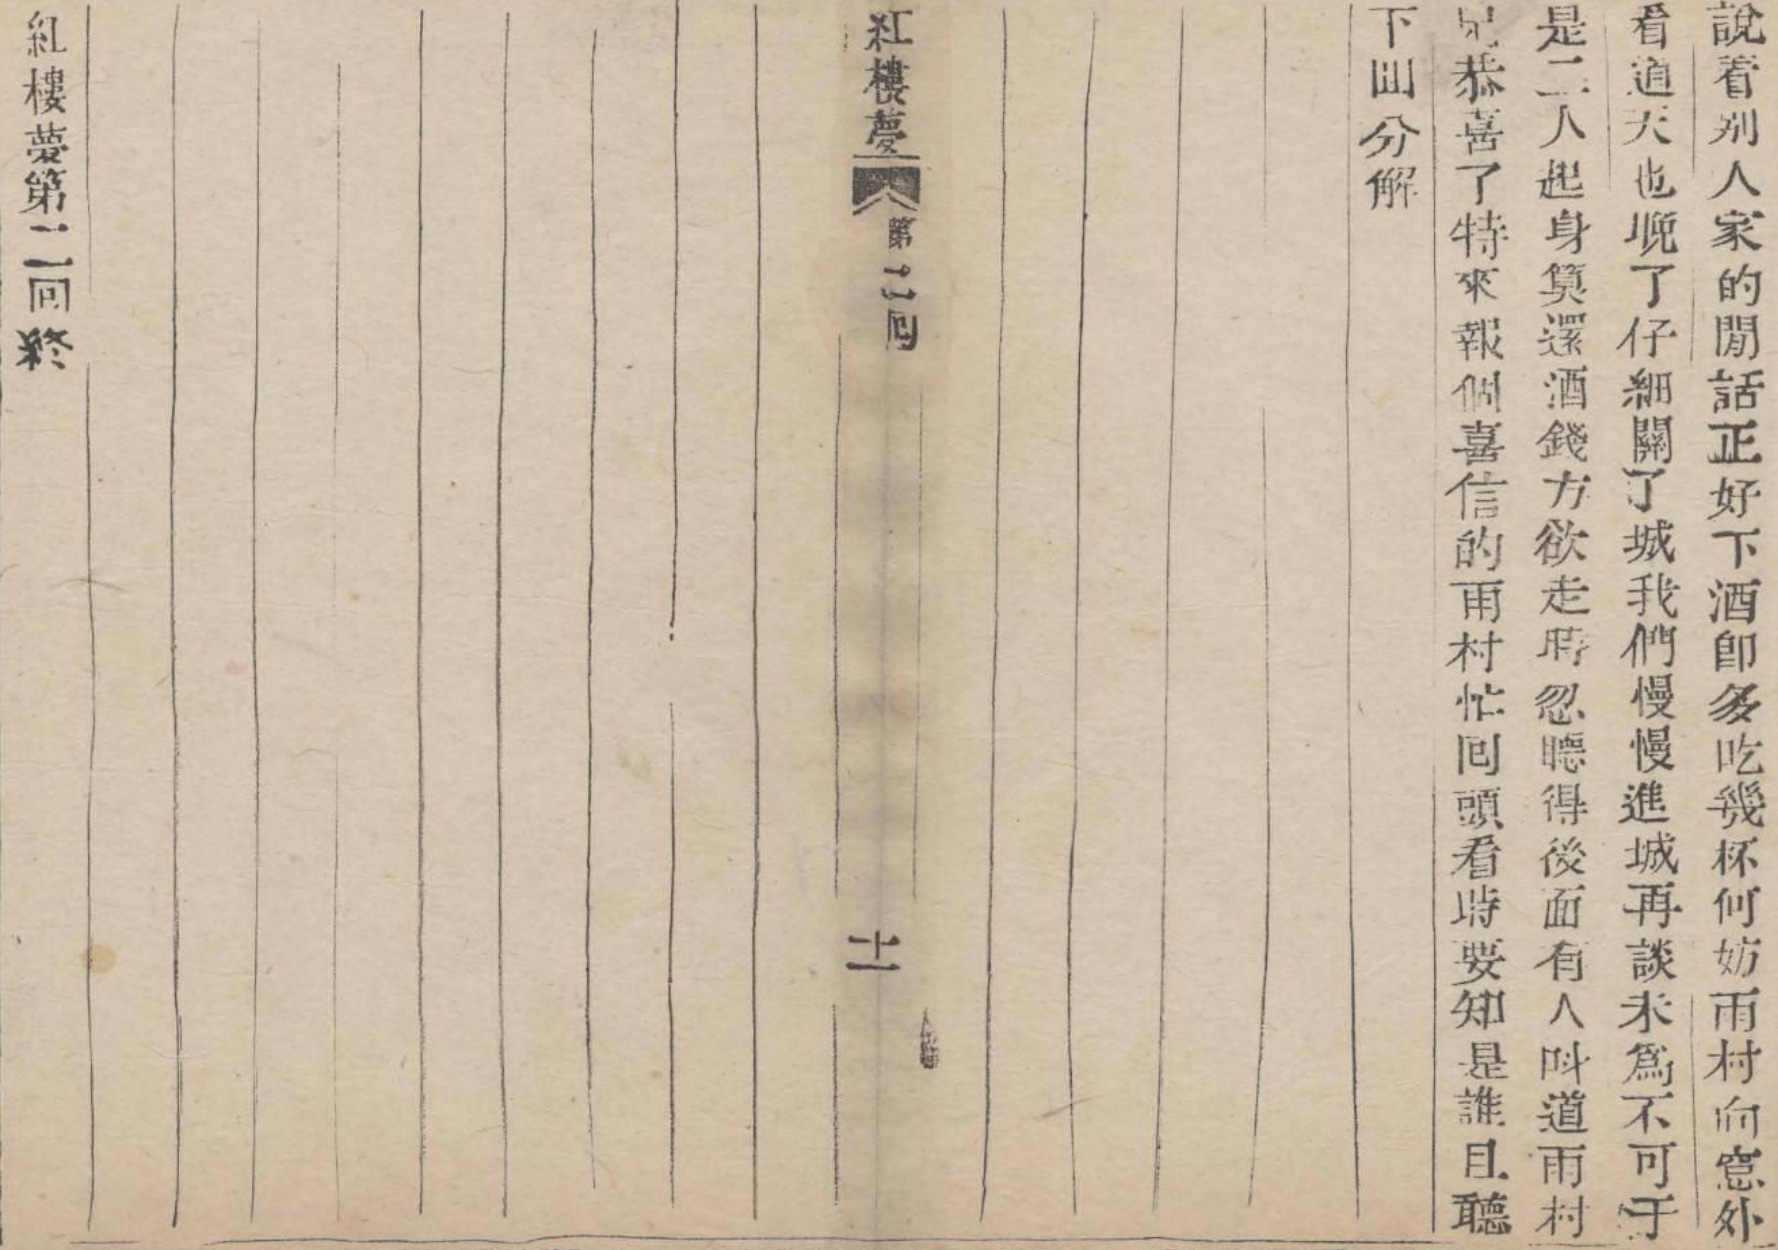 說着别人家的閒話正好下酒卽多吃幾杯何妨雨村向窻外
看道天也晚了仔細關了城我們慢慢進城再談未爲不可于
是二人起身算還酒錢方欲走時忽聽得後面有人呌道雨村
兄恭喜了特來報個喜信的雨村忙囘頭看時要知是誰且聽
下囘分解
紅樓夢
第二囘
十一
紅樓夢第二囘終